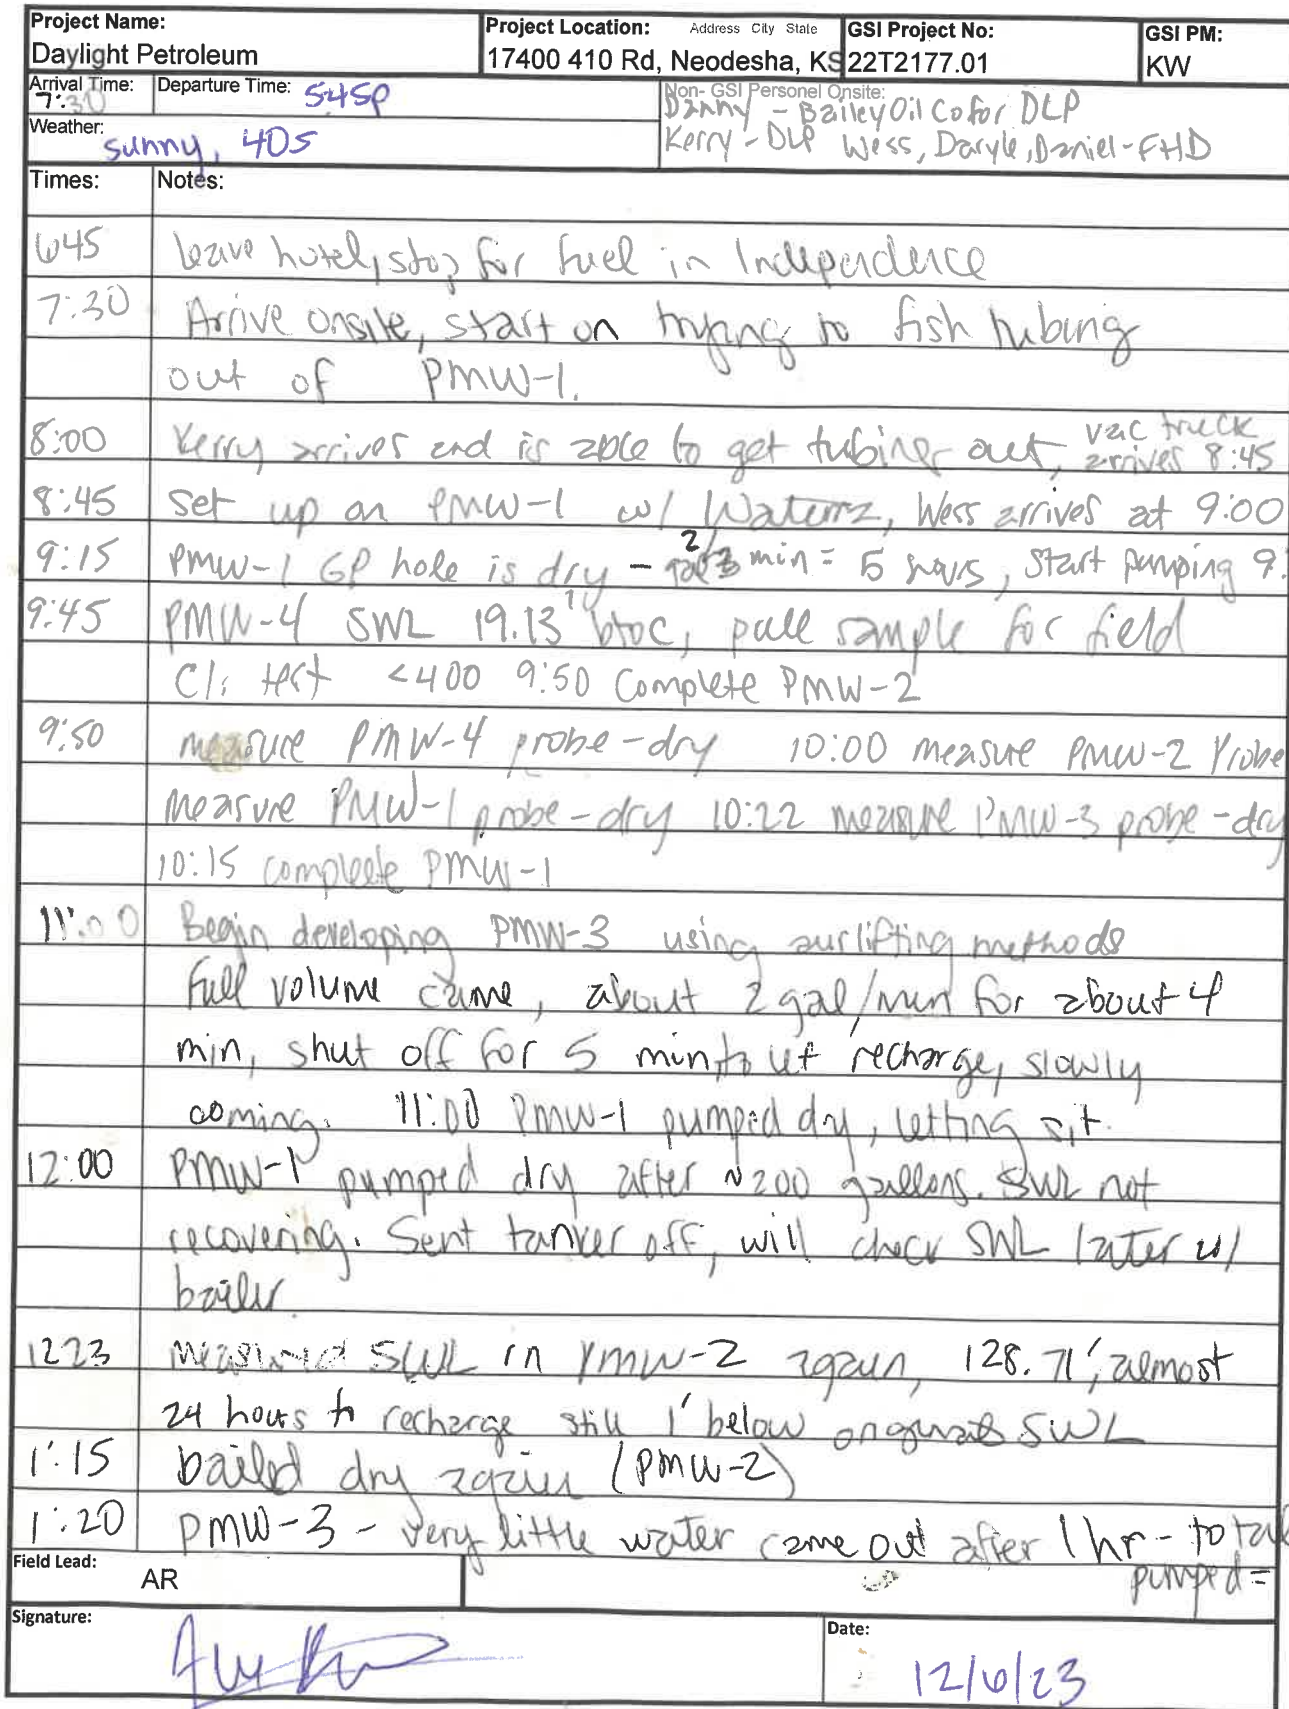 Project Name:
Daylight Petroleum
Project Location: Address City State
17400 410 Rd, Neodesha, KS
GSI Project No:
22T2177.01
GSI PM:
KW
Arrival Time:
7:30
Departure Time: 545p
Non- GSI Personel Onsite:
Danny - Bailey Oil Co for DLP
Kerry - DLP Wess, Daryle, Daniel - FHD
Weather:
sunny, 40s
Times: Notes:
645 leave hotel, stop for fuel in Independence
7:30 Arrive onsite, start on trying to fish tubing
out of PMW-1.
8:00 Kerry arrives and is able to get tubing out, vac truck
arrives 8:45
8:45 set up on PMW-1 w/ Waterra, Wess arrives at 9:00
9:15 PMW-1 GP hole is dry - 2 min = 5 hours, start pumping 9:
9:45 PMW-4 SWL 19.13' btoc, pull sample for field
Cl: test <400 9:50 Complete PMW-2
9:50 measure PMW-4 probe-dry 10:00 measure PMW-2 Probe
measure PMW-1 probe-dry 10:22 measure PMW-3 probe-dry
10:15 complete PMW-1
11:00 Begin developing PMW-3 using airlifting methods
Full volume came, about 2 gal/min for about 4
min, shut off for 5 min to let recharge, slowly
coming. 11:00 PMW-1 pumped dry, letting sit.
12:00 PMW-1 pumped dry after ~200 gallons. SWL not
recovering. Sent tanker off, will check SWL later w/
bailer.
1223 Measured SWL in PMW-2 again, 128.71', almost
24 hours to recharge still 1' below original SWL
1:15 bailed dry again (PMW-2)
1:20 PMW-3 - very little water came out after 1 hr - total
pumped =
Field Lead:
AR
Signature:
Date:
12/6/23